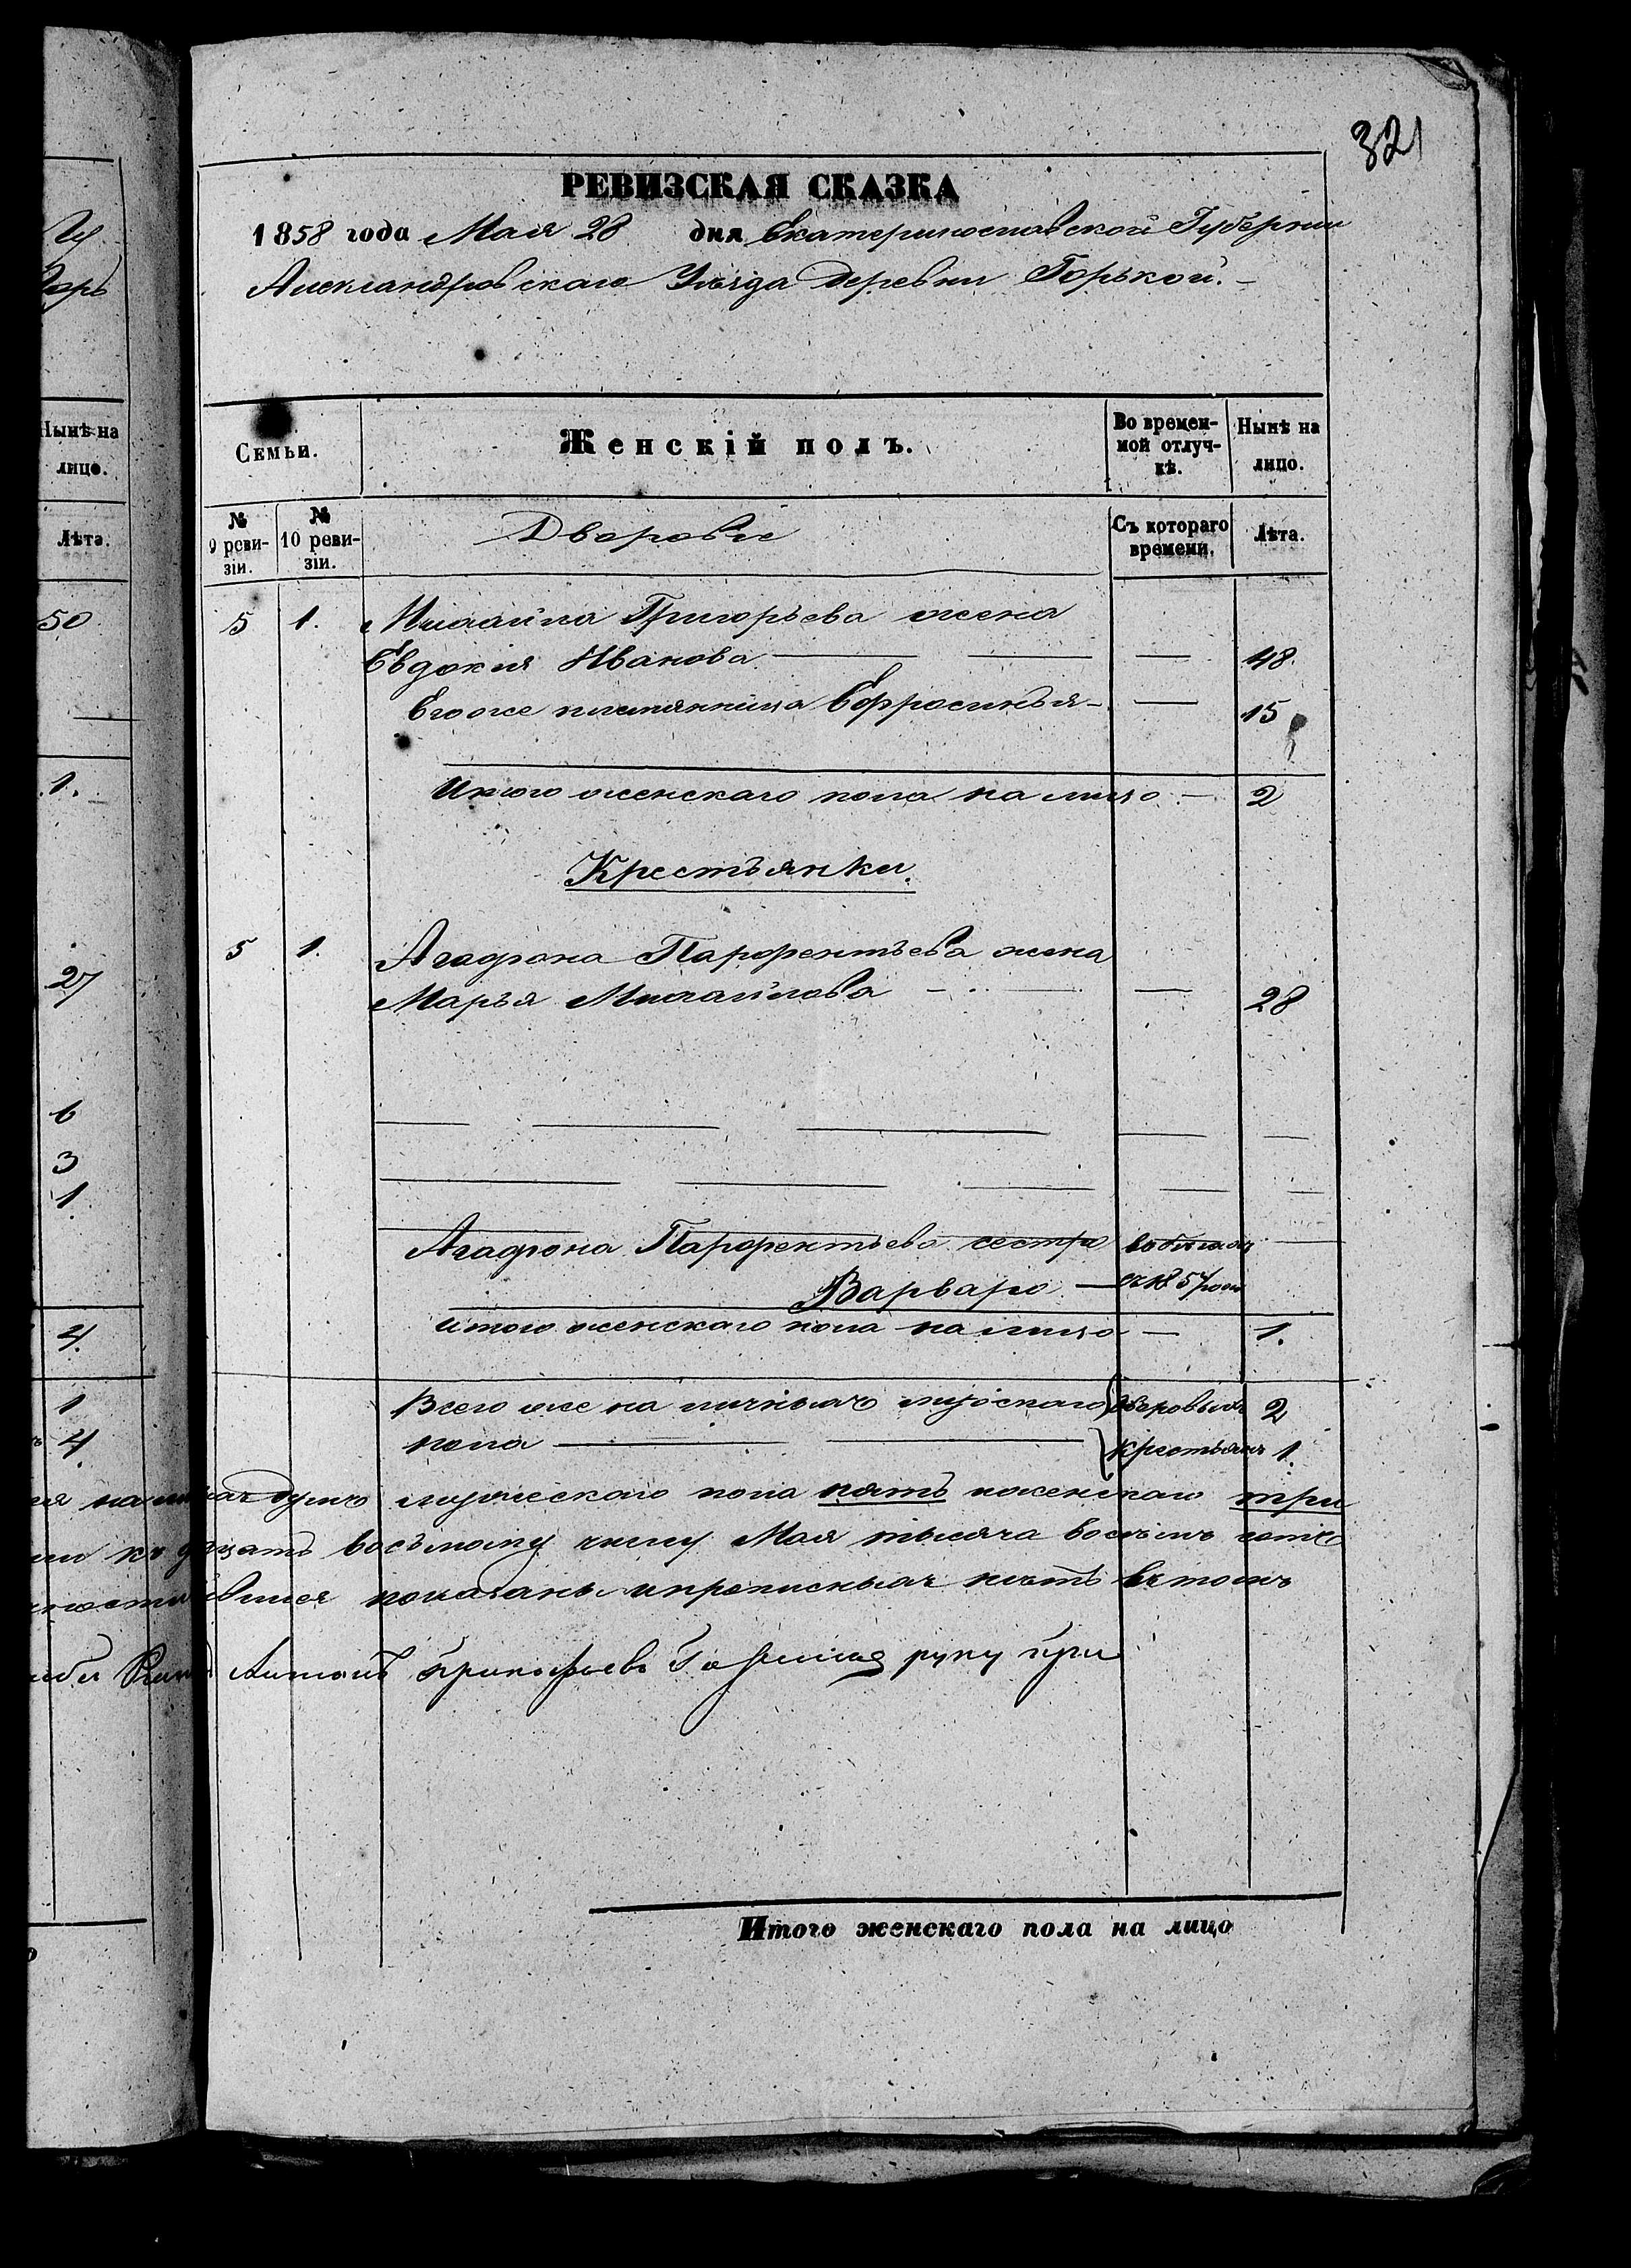 321
РЕВИЗСКАЯ СКАЗКА
1858 года Мая 28 дня Екатеринославской Губернии
Александровскаго Уѣзда Деревни Горькой.
Семьи.
Женскій полъ.
Во времен-
ной отлуч-
кѣ.
Нынѣ на
лицо.
№
9 реви-
зіи.
№
10 реви-
зіи.
Дворовые
Съ котораго
времени.
Лѣта.
5 1. Михайла Григорьева жена
Евдокия Иванова — — — 48.
Егоже племянница Ефросинья — — 15
Итого женскаго пола на лицо — 2
Крестьянки.
5 1. Агафона Парфентьева жена
Марья Михайлова — — — 28
Агафона Парфентьева сестра въ бѣгахъ —
Варвара — съ 1854 года
Итого женскаго пола на лицо — 1.
Всего же на личныхъ дворовыхъ 2
пола — — крестьянъ 1.
душъ мужескаго пола пять и женскаго три
восьмому числу Мая тысяча восемь сотъ
показаны и прописныхъ нѣтъ въ томъ
Антонъ Прокофьевъ руку
Итого женскаго пола на лицо
Нынѣ на
лицо.
Лѣта.
50
1.
27
6
3
1
4.
1
4.